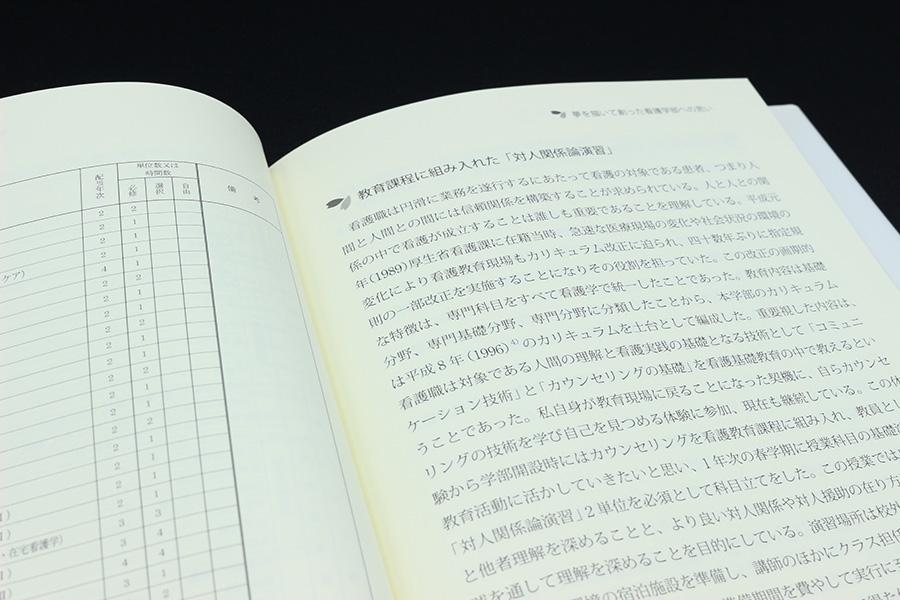 配当年次
単位数又は
時間数
必修
選択
自由
備考
2 2
2 1
2 1
2 1
ケア）
4 1
2 1
2 2
2 2
2 1
2 1
2 2
2 1
2 1
2 1
2 1
3 3
・在宅看護学）
3 4
4 4
夢を描いて創った看護学部への思い
教育課程に組み入れた「対人関係論演習」
看護職は円滑に業務を遂行するにあたって看護の対象である患者、つまり人
間と人間との間には信頼関係を構築することが求められている。人と人との関
係の中で看護が成立することは誰しも重要であることを理解している。平成元
年（1989）厚生省看護課に在籍当時、急速な医療現場の変化や社会状況の環境の
変化により看護教育現場もカリキュラム改正に迫られ、四十数年ぶりに指定規
則の一部改正を実施することになりその役割を担っていた。この改正の画期的
な特徴は、専門科目をすべて看護学で統一したことであった。教育内容は基礎
分野、専門基礎分野、専門分野に分類したことから、本学部のカリキュラム
は平成8年（1996）4）のカリキュラムを土台として編成した。重要視した内容は、
看護職は対象である人間の理解と看護実践の基礎となる技術として「コミュニ
ケーション技術」と「カウンセリングの基礎」を看護基礎教育の中で教えるとい
うことであった。私自身が教育現場に戻ることになった契機に、自らカウンセ
リングの技術を学び自己を見つめる体験に参加、現在も継続している。この体
験から学部開設時にはカウンセリングを看護教育課程に組み入れ、教員とし
教育活動に活かしていきたいと思い、1年次の春学期に授業科目の基礎
「対人関係論演習」2単位を必須として科目立てをした。この授業では
と他者理解を深めることと、より良い対人関係や対人援助の在り方
を通して理解を深めることを目的にしている。演習場所は校外
環境の宿泊施設を準備し、講師のほかにクラス担任
準備期間を費やして実行に